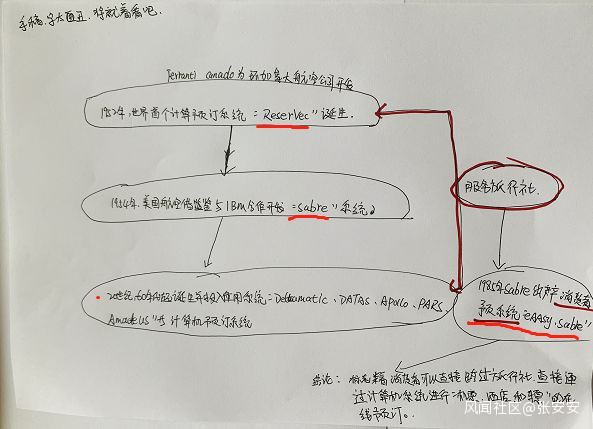 手稿.字大面丑.将就着看吧.
Ferranti canado为环加拿大航空公司开发
1952年,世界首个计算机预订系统"Reservec"诞生.
1954年,美国航空 与IBM合作开始"sabre"系统。
服务旅行社.
20世纪60年代 诞生并投入使用系统:Deltamatic、DATAS、Apollo、PARS、
Amadeus"等计算机预订系统
1985年sabre 消费者
预定系统"eAAsy.sabre"
结论: 消费者可以直接 过旅行社.直接通
过计算机系统进行 机票、酒店和 的在
线预订。
风闻社区@张安安